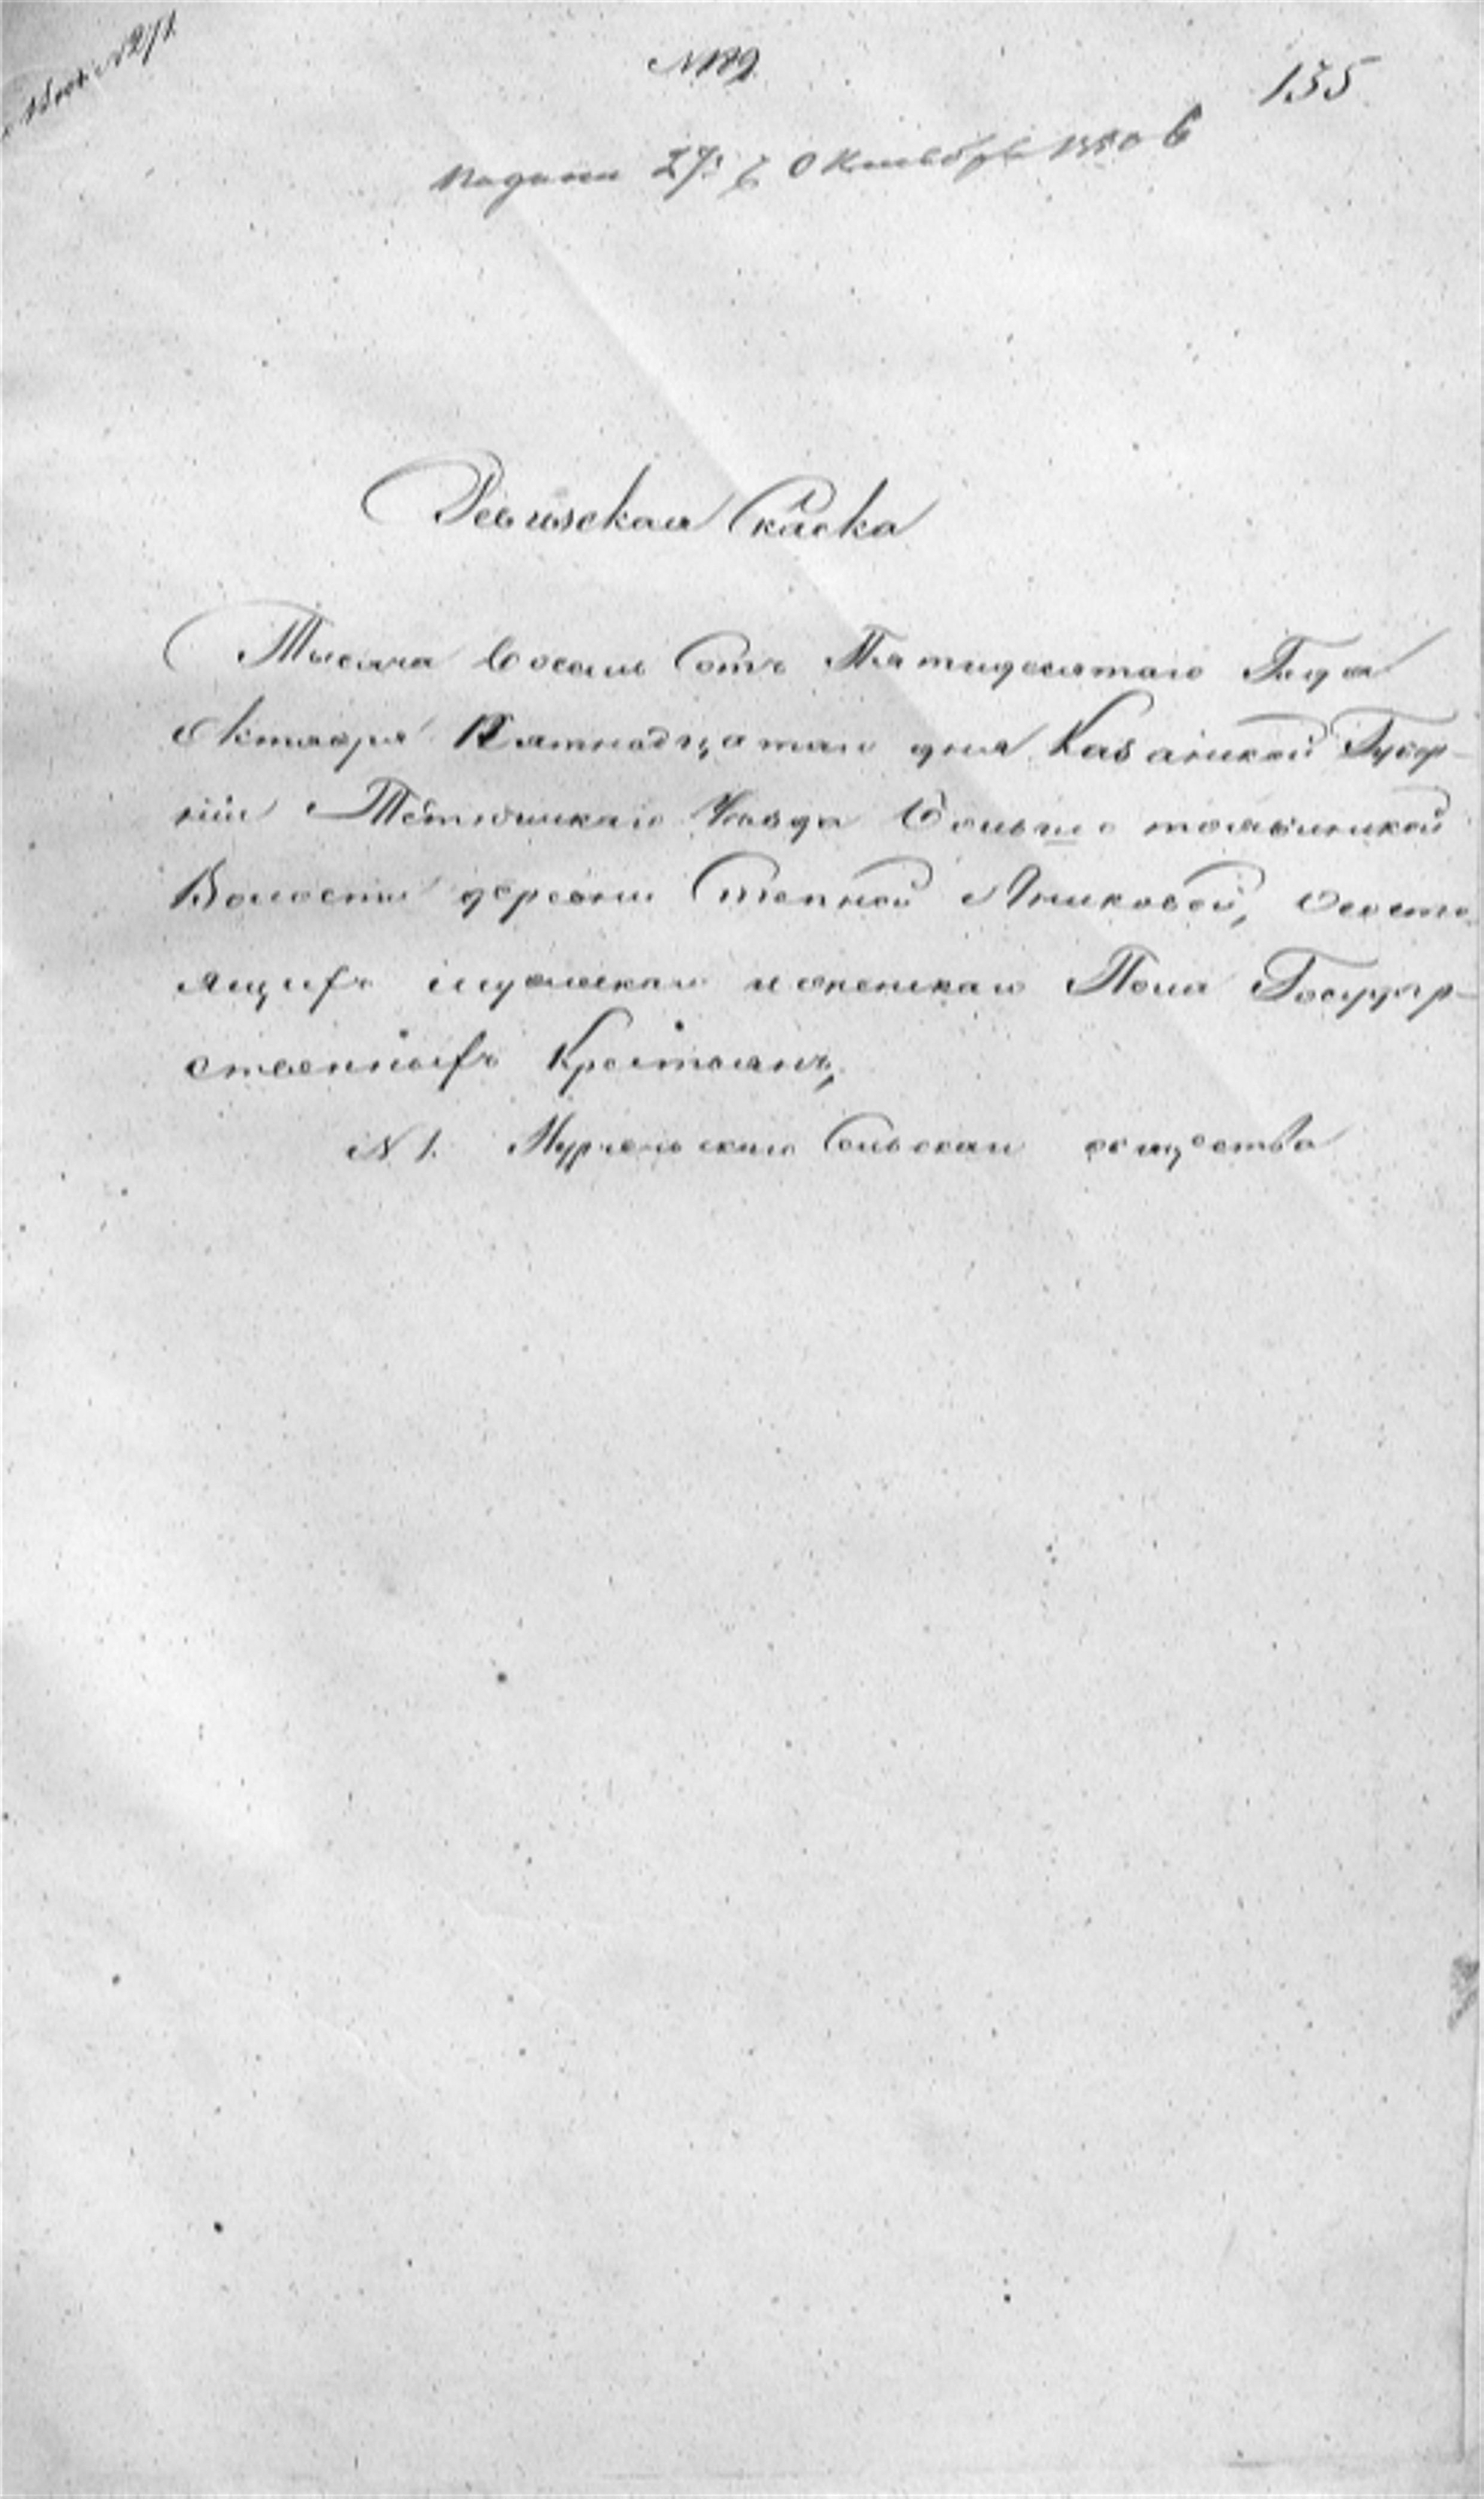 155
Подана 27 Октября 1850 г
Ревизская Скаска
Тысяча восемь сотъ Пятидесятаго Года
Октября Пятнадцатаго дня Казанской Губер-
ніи Тетюшскаго Уѣзда Больше тоябинской
Волости деревни Степной Аниковой, о состо
ящихъ мужескаго и женскаго Пола Государ-
ственныхъ Крестьянъ,
№ 1. сельскаго общества